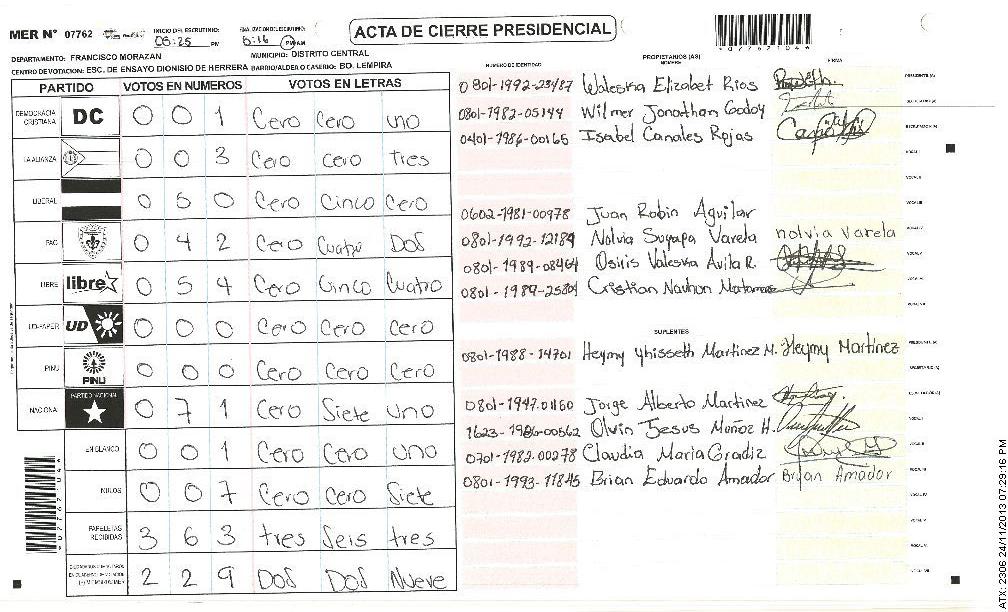 ACTA DE CIERRE PRESIDENCIAL
MER N° 07762
INICIO DEL ESCRUTINIO: 05:25 PM
FINALIZACION DE ESCRUTINIO: 6:16 PM AM
DEPARTAMENTO: FRANCISCO MORAZAN MUNICIPIO: DISTRITO CENTRAL
CENTRO DE VOTACION: ESC. DE ENSAYO DIONISIO DE HERRERA BARRIO/ALDEA O CASERIO: BO. LEMPIRA
PARTIDO VOTOS EN NUMEROS VOTOS EN LETRAS
DEMOCRACIA CRISTIANA DC 0 0 1 Cero Cero uno
LA ALIANZA 0 0 3 Cero Cero tres
LIBERAL 0 5 0 Cero Cinco Cero
PAC 0 4 2 Cero Cuatro Dos
LIBRE libre 0 5 4 Cero Cinco Cuatro
UD-FAPER UD 0 0 0 Cero Cero Cero
PINU PINU 0 0 0 Cero Cero Cero
NACIONAL PARTIDO NACIONAL 0 7 1 Cero Siete uno
EN BLANCO 0 0 1 Cero Cero uno
NULOS 0 0 7 Cero Cero Siete
PAPELETAS RECIBIDAS 3 6 3 tres Seis tres
2 2 9 Dos Dos Nueve
NUMERO DE IDENTIDAD PROPIETARIOS (AS) NOMBRE FIRMA
0801-1992-23487 Waleska Elizabet Rios PRESIDENTE (A)
0801-1982-05144 Wilmer Jonathan Godoy SECRETARIO (A)
0401-1986-00165 Isabel Canales Rojas ESCRUTADOR (A)
VOCAL I
VOCAL II
0602-1981-00978 Juan Robin Aguilar VOCAL III
0801-1992-12189 Nolvia Suyapa Varela nolvia Varela VOCAL IV
0801-1989-08464 Osiris Valeska Avila R. VOCAL V
0801-1989-25804 Cristian Nauhun Matamoros VOCAL VI
SUPLENTES
0801-1988-14701 Heymy Yhisseth Martinez M. Heymy Martinez PRESIDENTE (A)
SECRETARIO (A)
0801-1947-01160 Jorge Alberto Martinez ESCRUTADOR (A)
1623-1986-00562 Olvin Jesus Muñoz H. VOCAL I
0701-1982-00278 Claudia Maria Gradiz VOCAL II
0801-1993-11845 Brian Eduardo Amador Bryan Amador VOCAL III
VOCAL IV
VOCAL V
VOCAL VI
ATX: 2306 24/11/2013 07:29:16 PM